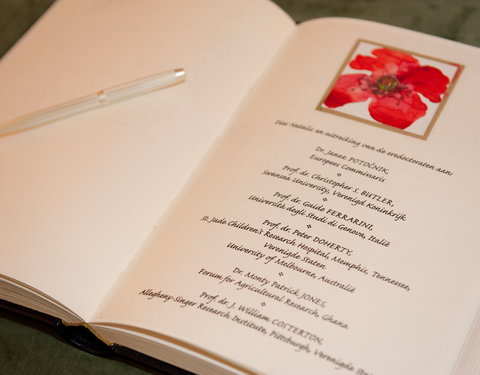 Dies Natalis en uitreiking van de eredoctoraten aan:
Dr. Janez POTOČNIK,
Europees Commissaris
Prof. dr. Christopher S. BUTLER,
Swansea University, Verenigd Koninkrijk
Prof. dr. Guido FERRARINI,
Università degli Studi di Genova, Italië
Prof. dr. Peter DOHERTY,
St. Jude Children's Research Hospital, Memphis, Tennessee,
Verenigde Staten
University of Melbourne, Australië
Dr. Monty Patrick JONES,
Forum for Agricultural Research, Ghana
Prof. dr. J. William COSTERTON,
Allegheny-Singer Research Institute, Pittsburgh, Verenigde Staten